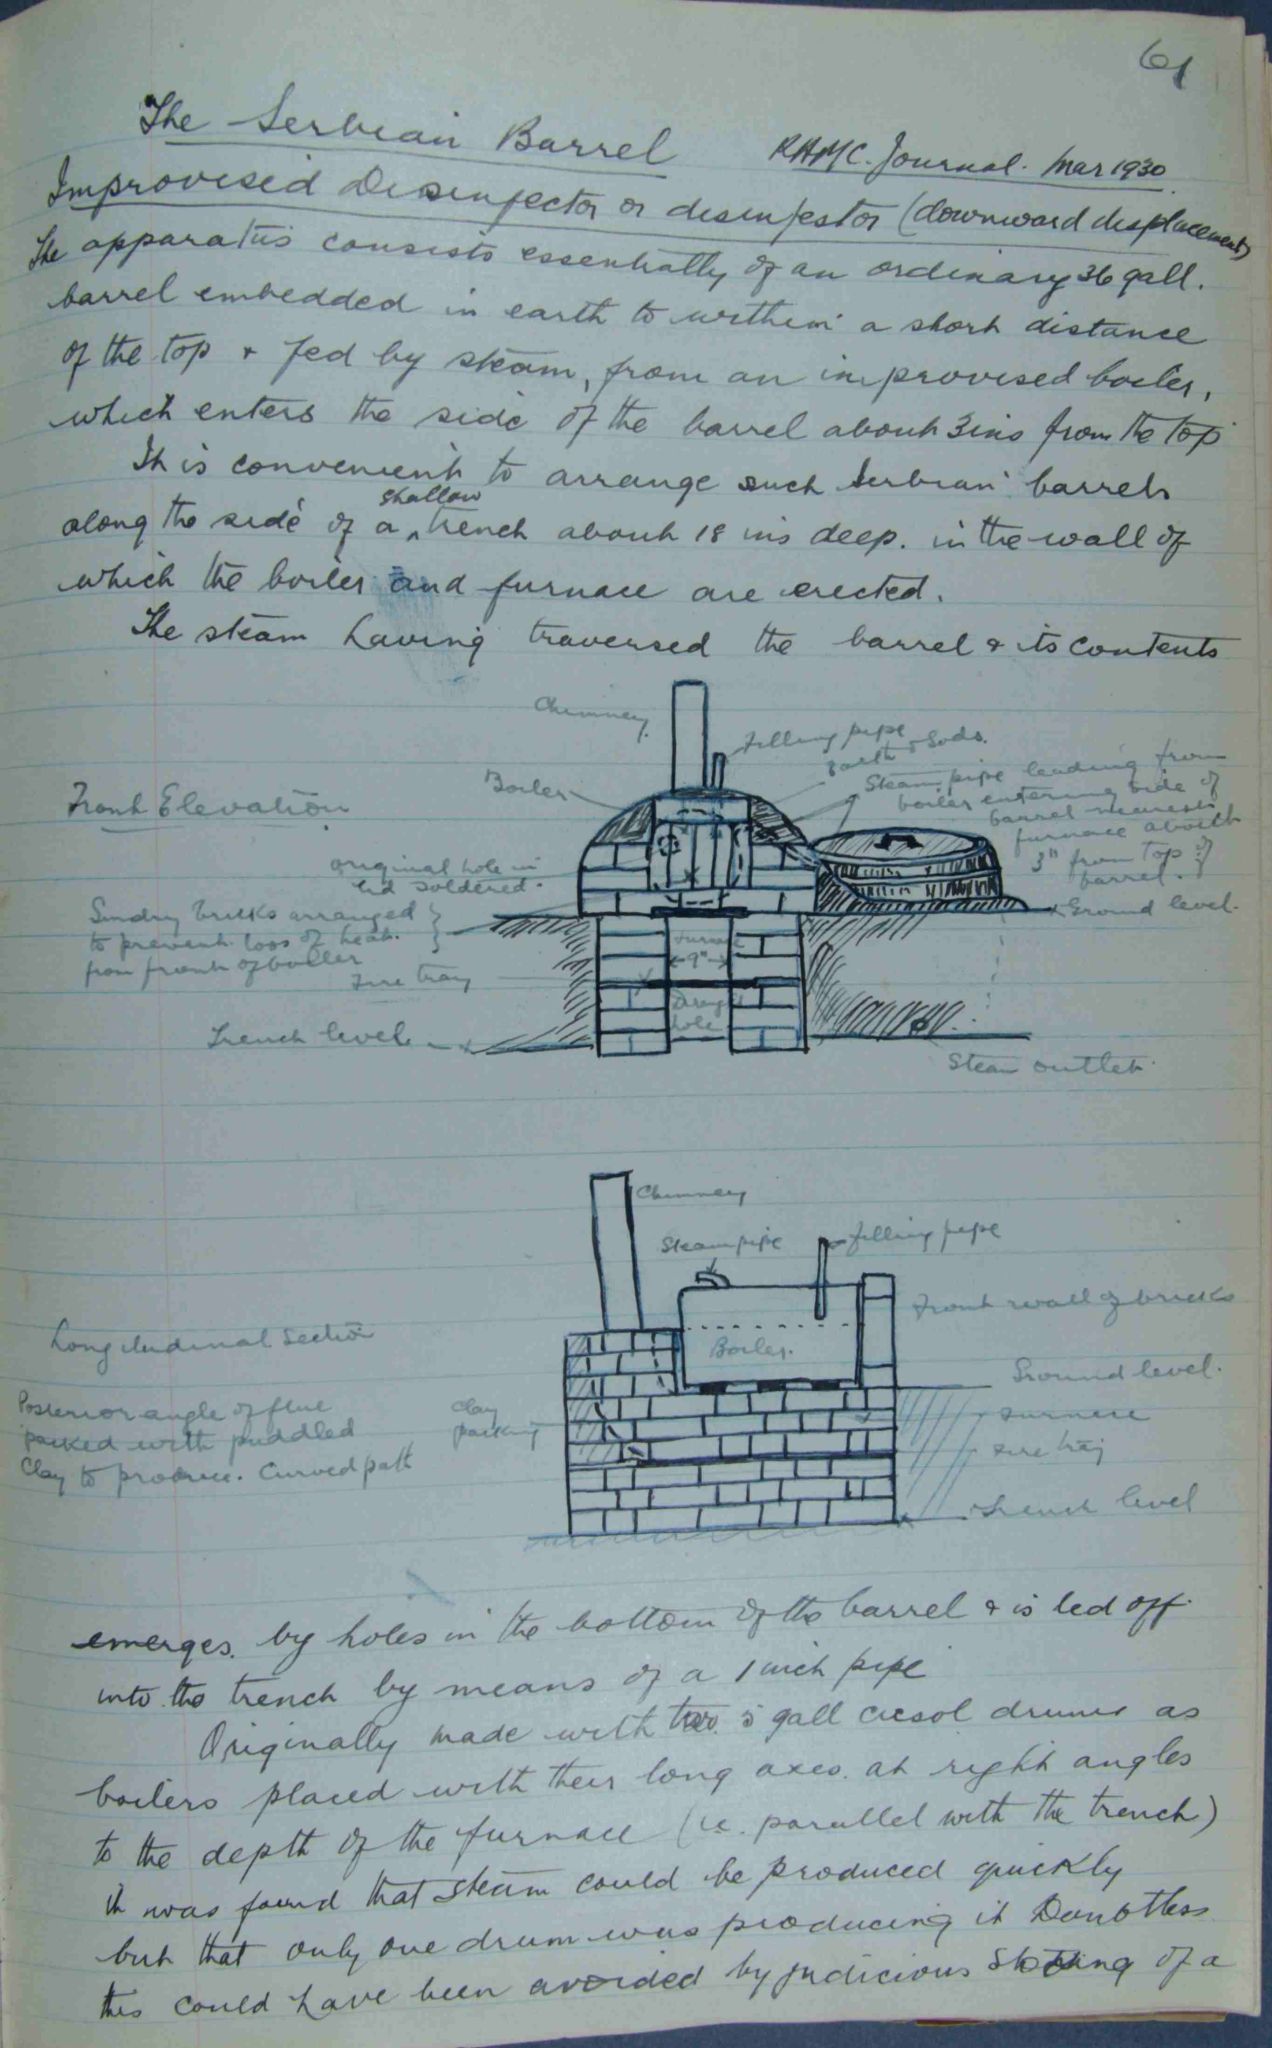 61
The Serbian Barrel
RAMC. Journal. Mar 1930
Improvised Disinfector or disinfestor (downward displacement)
The apparatus consists essentially of an ordinary 36 gall.
barrel embedded in earth to within a short distance
of the top & fed by steam, from an improvised boiler,
which enters the side of the barrel about 3ins from the top
It is convenient to arrange such Serbian barrels
shallow
along the side of a trench about 18 ins deep. in the wall of
which the boiler and furnace are erected.
The steam having traversed the barrel & its contents
Chimney
Filling pipe
Earth & Sods.
Boiler
Steam pipe leading from
boiler entering side of
barrel nearest
furnace about
3" from top of
barrel.
Front Elevation
original hole in
lid soldered.
Sundry bricks arranged
to prevent loss of heat.
from front of boiler
Ground level.
Furnace
9"
Fire tray
Draught
hole
Trench level
Steam outlet.
Chimney
Steam pipe
filling pipe
Front wall of bricks
Longitudinal Section
Boiler.
Ground level.
Posterior angle of flue
packed with puddled
Clay to produce. Curved path
Clay
packing
furnace
fire tray
Trench level
emerges. by holes in the bottom of the barrel & is led off
into the trench by means of a 1 inch pipe
Originally made with two 5 gall cresol drums as
boilers placed with their long axes. at right angles
to the depth of the furnace (i.e. parallel with the trench)
it was found that steam could be produced quickly
but that only one drum was producing it Doubtless
this could have been avoided by judicious stoking of a